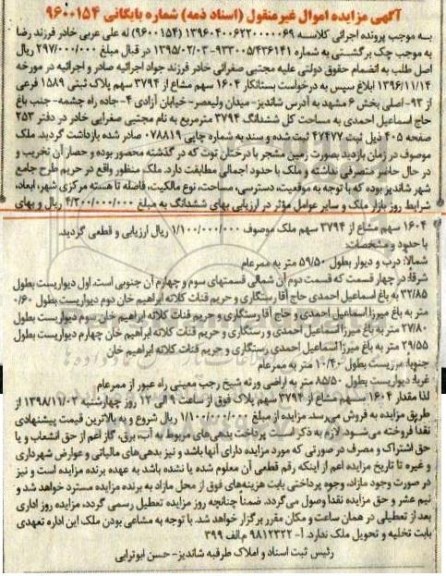 آگهی مزایده اموال غیرمنقول (اسناد ذمه) شماره بایگانی ۹۶۰۰۱۵۴
به موجب پرونده اجرائی کلاسه ۱۳۹۶۰۴۰۰۶۲۲۰۰۰۰۶۹ (۹۶۰۰۱۵۴) له علی عربی خادر فرزند رضا
به موجب چک برگشتی به شماره ۹۳۳۰۰۵/۴۳۶۱۴۱-۱۳۹۵/۰۲/۰۳ در قبال مبلغ ۲۹۷/۰۰۰/۰۰۰ ریال
اصل طلب به انضمام حقوق دولتی علیه مجتبی صفرائی خادر فرزند جواد اجرائیه صادر و اجرائیه در مورخه
۱۳۹۶/۱۱/۱۴ ابلاغ سپس به درخواست بستانکار ۱۶۰۴ سهم مشاع از ۳۷۹۴ سهم پلاک ثبتی ۱۵۸۹ فرعی
از ۹۳- اصلی بخش ۶ مشهد به آدرس شاندیز- میدان ولیعصر- خیابان آزادی ۴- جاده راه چشمه- جنب باغ
حاج اسماعیل احمدی به مساحت کل ششدانگ ۳۷۹۴ مترمربع به نام مجتبی صفرایی خادر در دفتر ۲۵۳
صفحه ۴۰۵ ذیل ثبت ۴۷۴۷۷ ثبت شده و سند به شماره چاپی ۰۷۸۸۱۹ صادر شده بازداشت گردید. ملک
موصوف در زمان بازدید بصورت زمین مشجر با درختان توت که در گذشته محصور بوده و حصار آن تخریب و
در حال حاضر متصرفی نداشته و ملک با حدود اجمالی مطابقت دارد. ملک منظور واقع در حریم طرح جامع
شهر شاندیز بوده که با توجه به موقعیت، دسترسی، مساحت، نوع مالکیت، فاصله تا هسته مرکزی شهر، ابعاد،
شرایط روز بازار ملک و سایر عوامل مؤثر در ارزیابی بهای ششدانگ به مبلغ ۴/۲۰۰/۰۰۰/۰۰۰ ریال و بهای
۱۶۰۴ سهم مشاع از ۳۷۹۴ سهم ملک موصوف ۱/۱۰۰/۰۰۰/۰۰۰ ریال ارزیابی و قطعی گردید.
با حدود و مشخصات:
شمالا: درب و دیوار بطول ۵۹/۵۰ متر به ممرعام
شرقا: در چهار قسمت که قسمت دوم آن شمالی قسمتهای سوم و چهارم آن جنوبی است. اول دیواریست بطول
۳۲/۸۵ به باغ اسماعیل احمدی و حاج آقا رستگاری و حریم قنات کلاته ابراهیم خان دوم دیواریست بطول ۰/۶۰
متر به باغ میرزا اسماعیل احمدی و حاج آقا رستگاری و حریم قنات کلاته ابراهیم خان سوم دیواریست بطول
۲۷/۸۰ متر به باغ میرزا اسماعیل احمدی و رستگاری و حریم قنات کلاته ابراهیم خان چهارم دیواریست بطول
۲۹/۵۵ متر به باغ میرزا اسماعیل احمدی رستگاری و حریم قنات کلاته ابراهیم خان
جنوبا: مرزیست بطول ۱۰/۴۰ متر به ممرعام
غربا: دیواریست بطول ۸۵/۵۰ متر به اراضی ورثه شیخ رجب معینی راه عبور از ممرعام
لذا مقدار ۱۶۰۴ سهم مشاع از ۳۷۹۴ سهم پلاک فوق از ساعت ۹ الی ۱۲ روز چهارشنبه ۱۳۹۸/۱۱/۰۲ از
طریق مزایده به فروش می‌رسد. مزایده از مبلغ ۱/۱۰۰/۰۰۰/۰۰۰ ریال شروع و به بالاترین قیمت پیشنهادی
نقدا فروخته می‌شود. لازم به ذکر است پرداخت بدهی‌های مربوط به آب، برق، گاز اعم از حق انشعاب و یا
حق اشتراک و مصرف در صورتی که مورد مزایده دارای آنها باشد و نیز بدهی‌های مالیاتی و عوارض شهرداری
و غیره تا تاریخ مزایده اعم از اینکه رقم قطعی آن معلوم شده یا نشده باشد به عهده برنده مزایده است و نیز
در صورت وجود مازاد، وجوه پرداختی بابت هزینه‌های فوق از محل مازاد به برنده مزایده مسترد خواهد شد و
نیم عشر و حق مزایده نقدا وصول می‌گردد. ضمنا چنانچه روز مزایده تعطیل رسمی گردد، مزایده روز اداری
بعد از تعطیلی در همان ساعت و مکان مقرر برگزار خواهد شد. با توجه به مشاعی بودن ملک این اداره تعهدی
بابت تخلیه و تحویل ملک ندارد. آ- ۹۸۱۲۳۲۲ م.الف ۳۹۹
رئیس ثبت اسناد و املاک طرقبه شاندیز- حسن ابوترابی